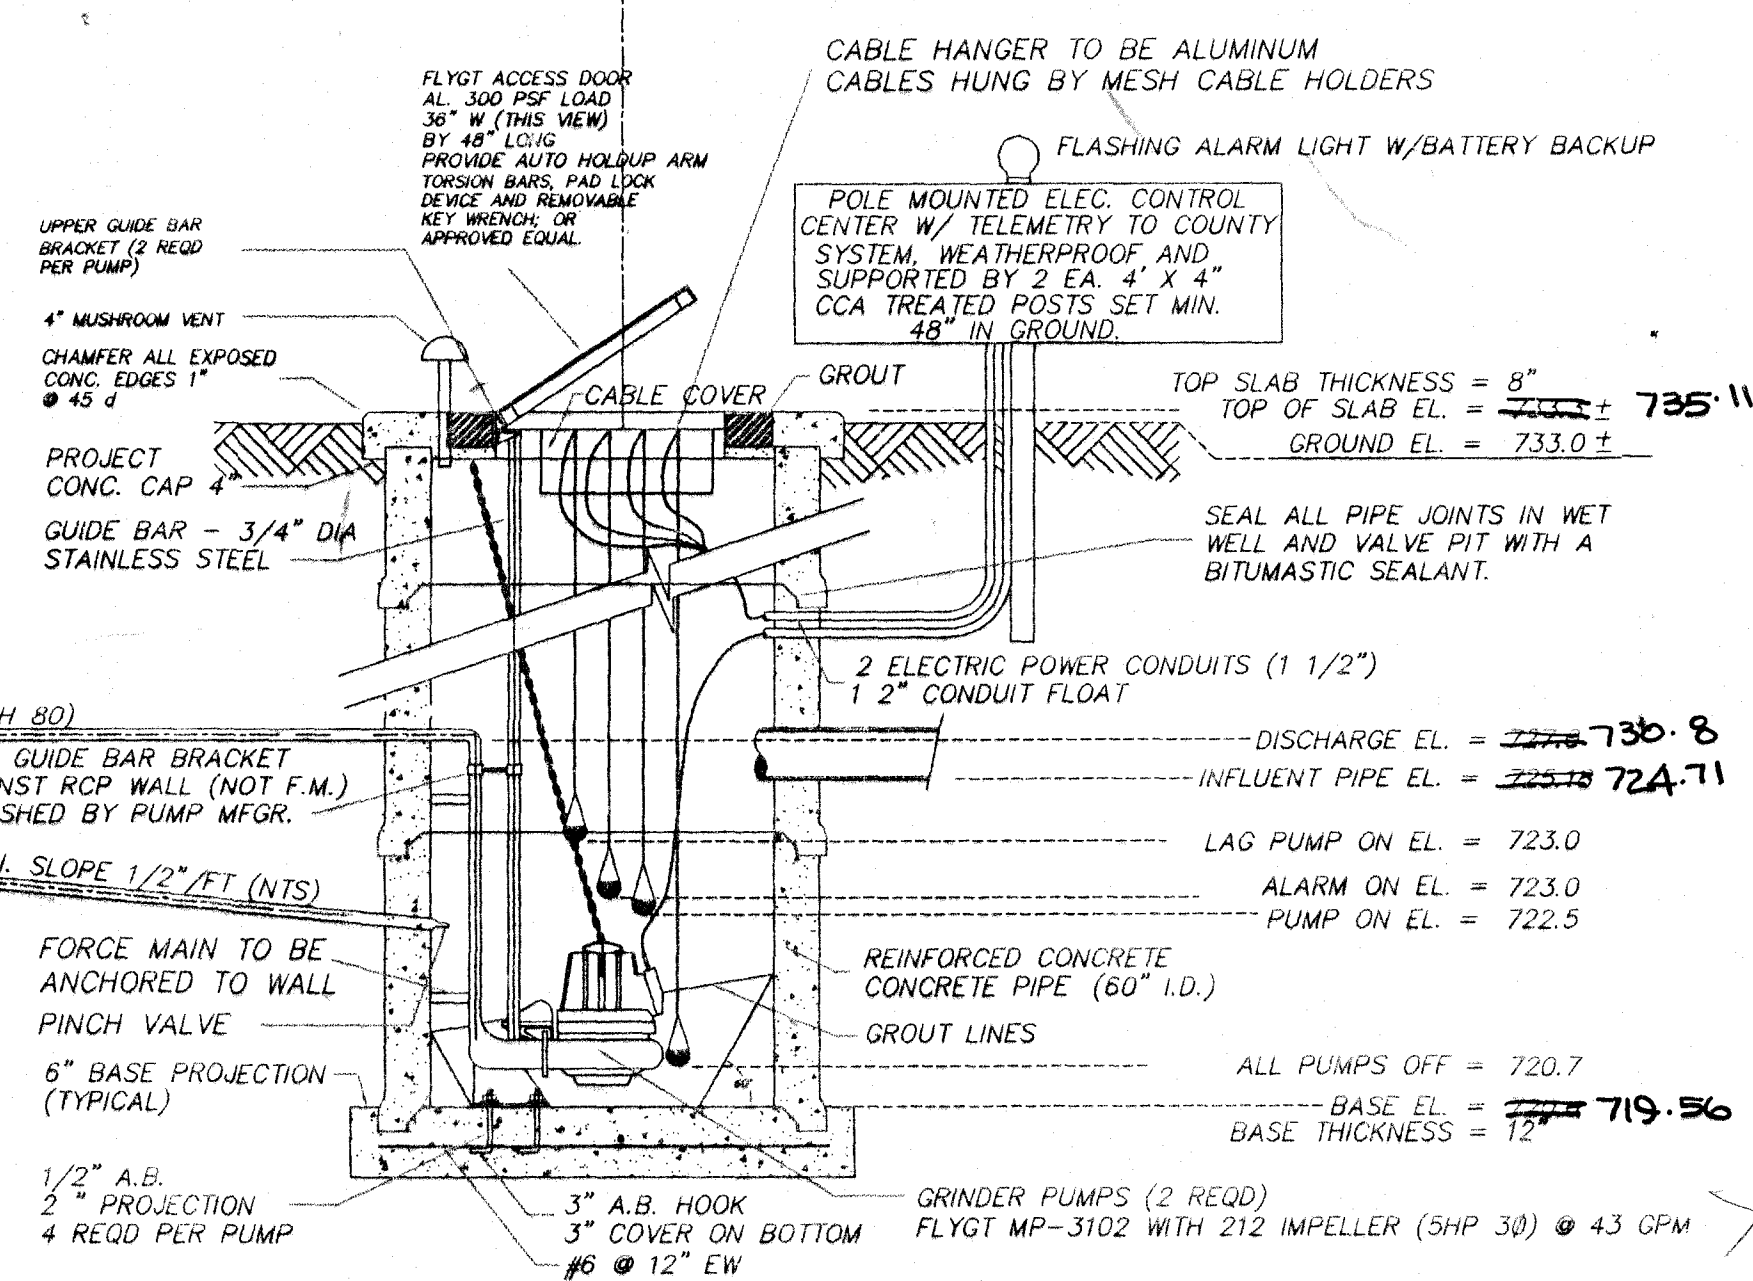 CABLE HANGER TO BE ALUMINUM
CABLES HUNG BY MESH CABLE HOLDERS
FLYGT ACCESS DOOR
AL. 300 PSF LOAD
36" W (THIS VIEW)
BY 48" LONG
PROVIDE AUTO HOLDUP ARM
TORSION BARS, PAD LOCK
DEVICE AND REMOVABLE
KEY WRENCH; OR
APPROVED EQUAL.
FLASHING ALARM LIGHT W/BATTERY BACKUP
POLE MOUNTED ELEC. CONTROL
CENTER W/ TELEMETRY TO COUNTY
SYSTEM, WEATHERPROOF AND
SUPPORTED BY 2 EA. 4' X 4"
CCA TREATED POSTS SET MIN.
48" IN GROUND.
UPPER GUIDE BAR
BRACKET (2 REQD
PER PUMP)
4" MUSHROOM VENT
CHAMFER ALL EXPOSED
CONC. EDGES 1"
@ 45 d
CABLE COVER
GROUT
TOP SLAB THICKNESS = 8"
TOP OF SLAB EL. = ± 735.11
GROUND EL. = 733.0 ±
PROJECT
CONC. CAP 4"
GUIDE BAR - 3/4" DIA
STAINLESS STEEL
SEAL ALL PIPE JOINTS IN WET
WELL AND VALVE PIT WITH A
BITUMASTIC SEALANT.
2 ELECTRIC POWER CONDUITS (1 1/2")
1 2" CONDUIT FLOAT
H 80)
GUIDE BAR BRACKET
NST RCP WALL (NOT F.M.)
SHED BY PUMP MFGR.
DISCHARGE EL. = 727.8 730.8
INFLUENT PIPE EL. = 725.18 724.71
LAG PUMP ON EL. = 723.0
ALARM ON EL. = 723.0
PUMP ON EL. = 722.5
. SLOPE 1/2"/FT (NTS)
FORCE MAIN TO BE
ANCHORED TO WALL
PINCH VALVE
REINFORCED CONCRETE
CONCRETE PIPE (60" I.D.)
GROUT LINES
6" BASE PROJECTION
(TYPICAL)
60°
ALL PUMPS OFF = 720.7
BASE EL. = 719.56
BASE THICKNESS = 12"
1/2" A.B.
2 " PROJECTION
4 REQD PER PUMP
3" A.B. HOOK
3" COVER ON BOTTOM
#6 @ 12" EW
GRINDER PUMPS (2 REQD)
FLYGT MP-3102 WITH 212 IMPELLER (5HP 3Ø) @ 43 GPM